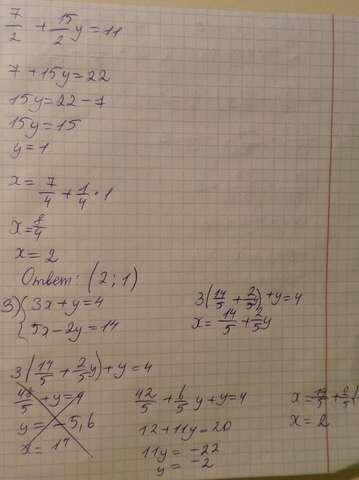 7/2 + 15/2 y = 11
7 + 15y = 22
15y = 22 - 7
15y = 15
y = 1
x = 7/4 + 1/4 · 1
x = 8/4
x = 2
Ответ: (2; 1)
3) { 3x + y = 4
5x - 2y = 14
3(14/5 + 2/5 y) + y = 4
x = 14/5 + 2/5 y
3(14/5 + 2/5 y) + y = 4
y = -5,6
x = 14
42/5 + 6/5 y + y = 4
12 + 11y = 20
11y = -22
y = -2
x = 2